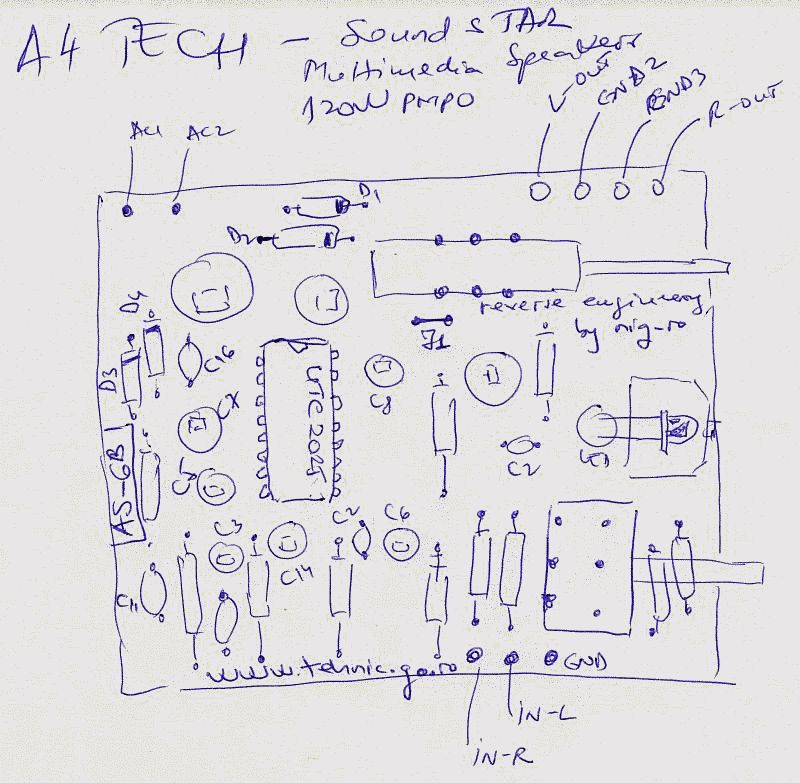 A4 TECH - Sound STAR
Multimedia Speakers
120W PMPO
V-OUT
GND2
GND3
R-OUT
AC1
AC2
D1
D2
reverse engineering
by nig-ro
J1
D4
D3
C16
CX
C8
UTC2025
AS-6B
C5
C2
C3
C14
C2
C6
C11
www.tehnic.go.ro
GND
IN-L
IN-R